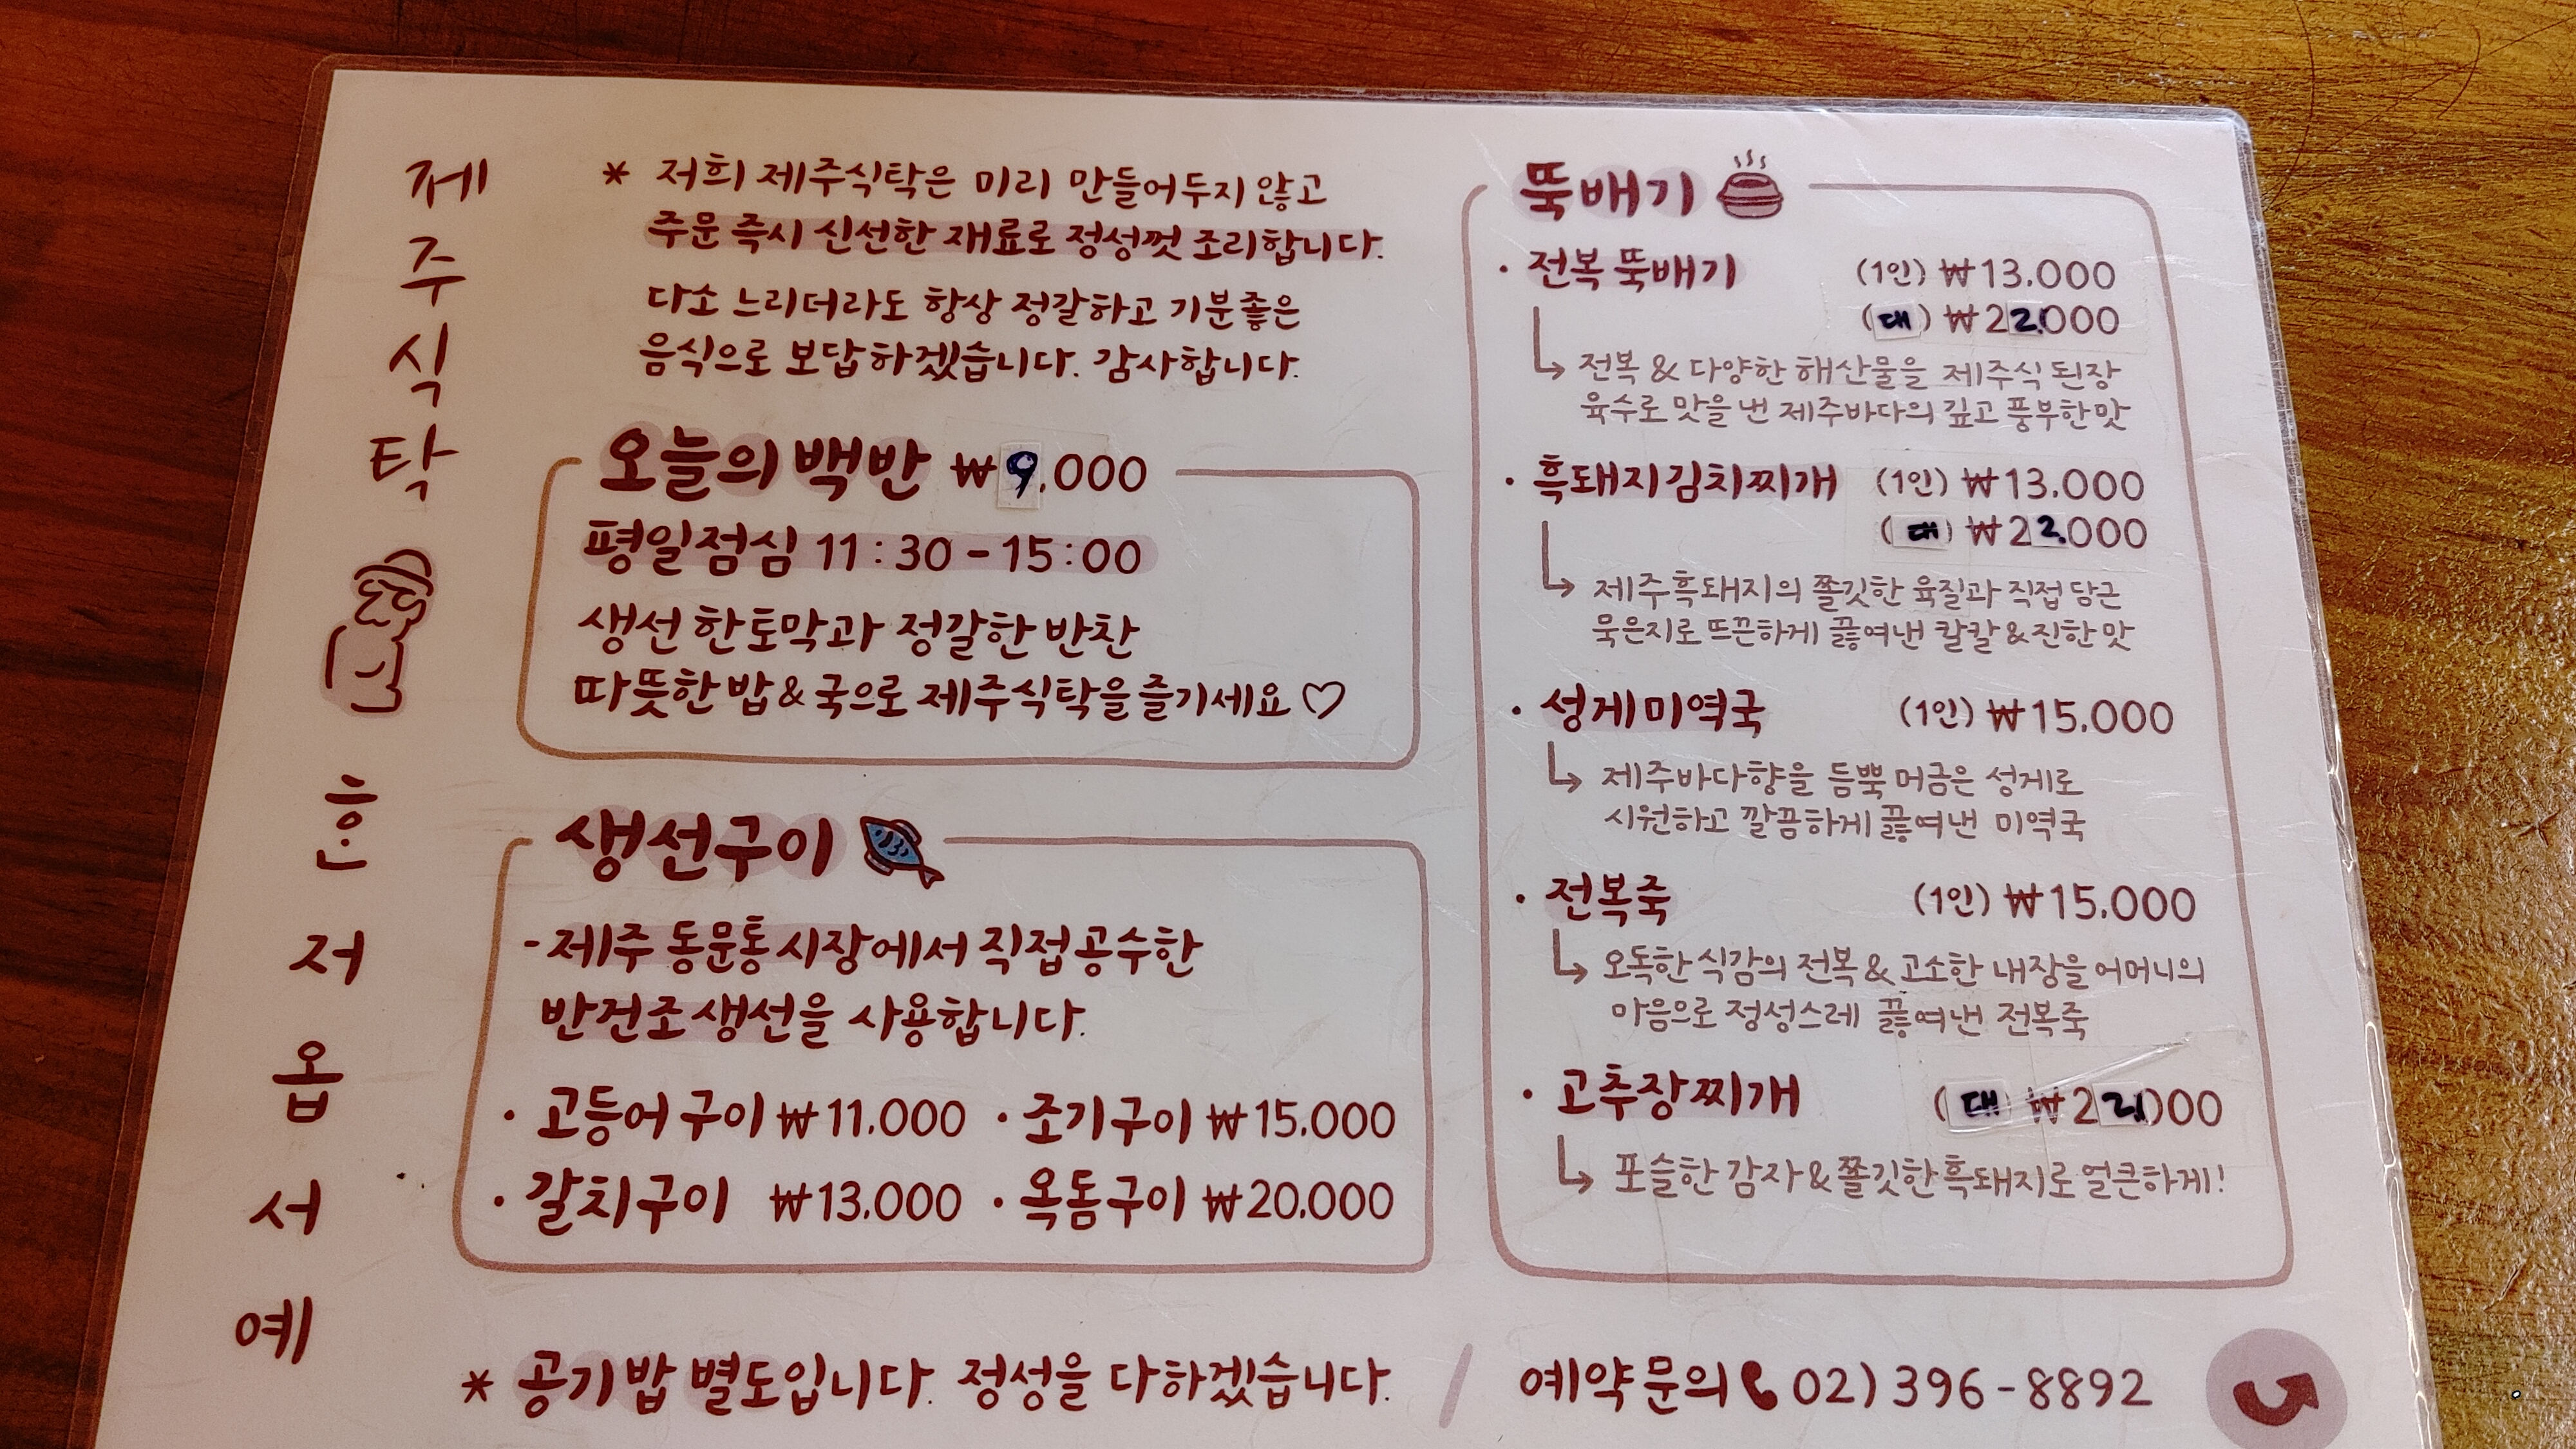 제주식탁
혼저옵서예
* 저희 제주식탁은 미리 만들어두지 않고
주문 즉시 신선한 재료로 정성껏 조리합니다.
다소 느리더라도 항상 정갈하고 기분좋은
음식으로 보답하겠습니다. 감사합니다.
오늘의 백반 ₩9,000
평일점심 11:30-15:00
생선 한토막과 정갈한 반찬
따뜻한 밥&국으로 제주식탁을 즐기세요♡
생선구이
-제주 동문통 시장에서 직접공수한
반건조 생선을 사용합니다.
· 고등어구이 ₩11.000 · 조기구이 ₩15.000
· 갈치구이 ₩13.000 · 옥돔구이 ₩20.000
뚝배기
· 전복 뚝배기 (1인) ₩13.000
(대) ₩22.000
↳ 전복 & 다양한 해산물을 제주식 된장
육수로 맛을 낸 제주바다의 깊고 풍부한 맛
· 흑돼지김치찌개 (1인) ₩13.000
(대) ₩22.000
↳ 제주흑돼지의 쫄깃한 육질과 직접 담근
묵은지로 뜨끈하게 끓여낸 칼칼&진한 맛
· 성게미역국 (1인) ₩15.000
↳ 제주바다향을 듬뿍 머금은 성게로
시원하고 깔끔하게 끓여낸 미역국
· 전복죽 (1인) ₩15.000
↳ 오독한 식감의 전복 & 고소한 내장을 어머니의
마음으로 정성스레 끓여낸 전복죽
· 고추장찌개 (대) ₩22.000
↳ 포슬한 감자&쫄깃한 흑돼지로 얼큰하게!
* 공기밥 별도입니다. 정성을 다하겠습니다. / 예약문의 02) 396-8892